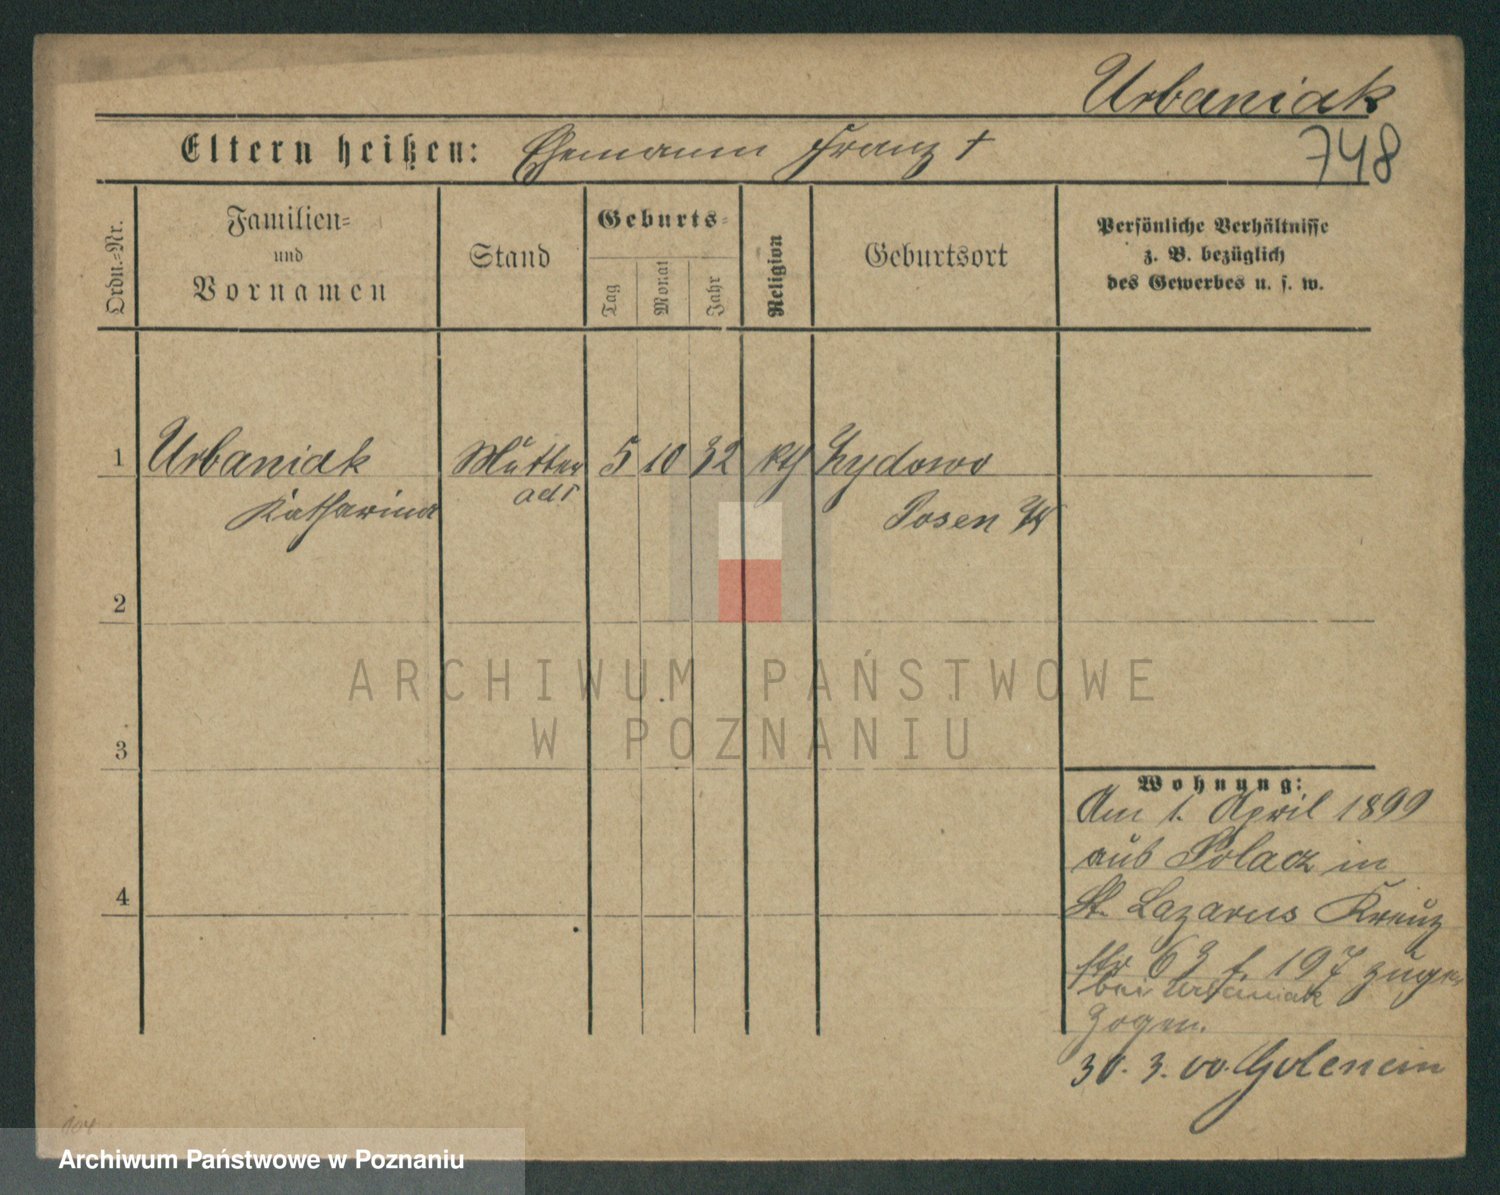 Urbaniak
Eltern heißen: Ehemann Franz †
748
Ordn.-Nr.
Familien-
und
Vornamen
Stand
Geburts-
Tag
Monat
Jahr
Religion
Geburtsort
Persönliche Verhältnisse
z. B. bezüglich
des Gewerbes u. s. w.
1 Urbaniak Mutter 5 10 32 kth Zydowo
Katharina Posen W
2
3
4
Wohnung:
Am 1. April 1899
aus Solacz in
St. Lazarus Kreuz
str 63 f. 197 zuge
bei Urbaniak
zogen.
30. 3. 00. Golencin
ARCHIWUM PAŃSTWOWE
W POZNANIU
Archiwum Państwowe w Poznaniu